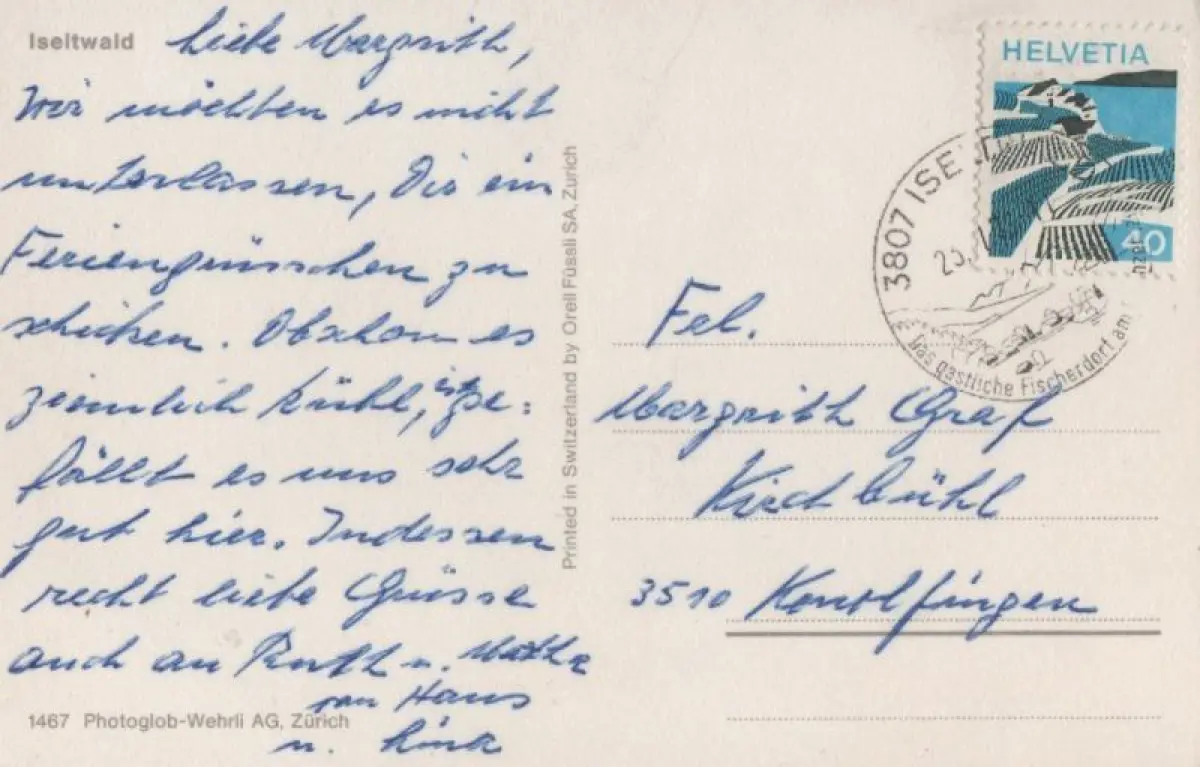 Iseltwald
Liebe Margrith,
Wir möchten es nicht
unterlassen, Dir ein
Feriengrüsschen zu
schicken. Obschon es
ziemlich kühl, ist ge=
fällt es uns sehr
gut hier. Indessen
recht liebe Grüsse
auch an Ruth u.
von Hans
u.
1467 Photoglob-Wehrli AG, Zürich
Printed in Switzerland by Orell Füssli SA, Zürich
HELVETIA
40
3807 ISE
Das gastliche Fischerdorf am
Frl.
Margrith Graf
Kirchbühl
3510 Konolfingen